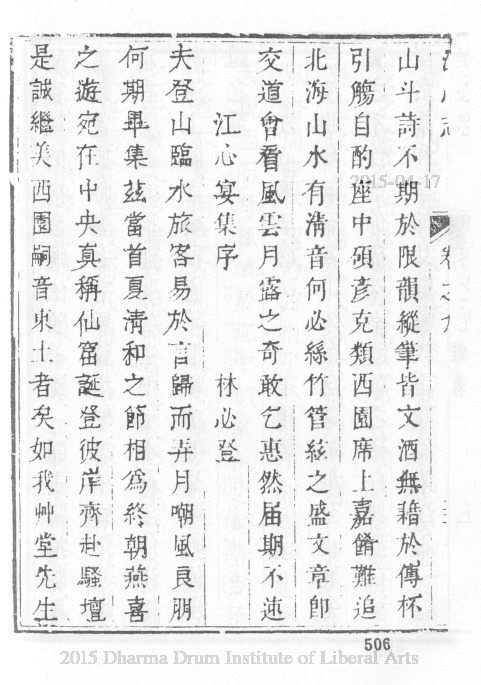 卷之九
山斗詩不期於限韻縱筆皆文酒無藉於傳杯
引觴自酌座中碩彥克類西園席上嘉餚難追
北海山水有清音何必絲竹管絃之盛文章即
交道會看風雲月露之奇敢乞惠然屆期不速
江心宴集序 林必登
夫登山臨水旅客易於言歸而弄月嘲風良朋
何期畢集茲當首夏清和之節相為終朝燕喜
之遊宛在中央真稱仙窟誕登彼岸齊赴騷壇
是誠繼美西園嗣音東土者矣如我艸堂先生
2015-04-17
506
2015 Dharma Drum Institute of Liberal Arts